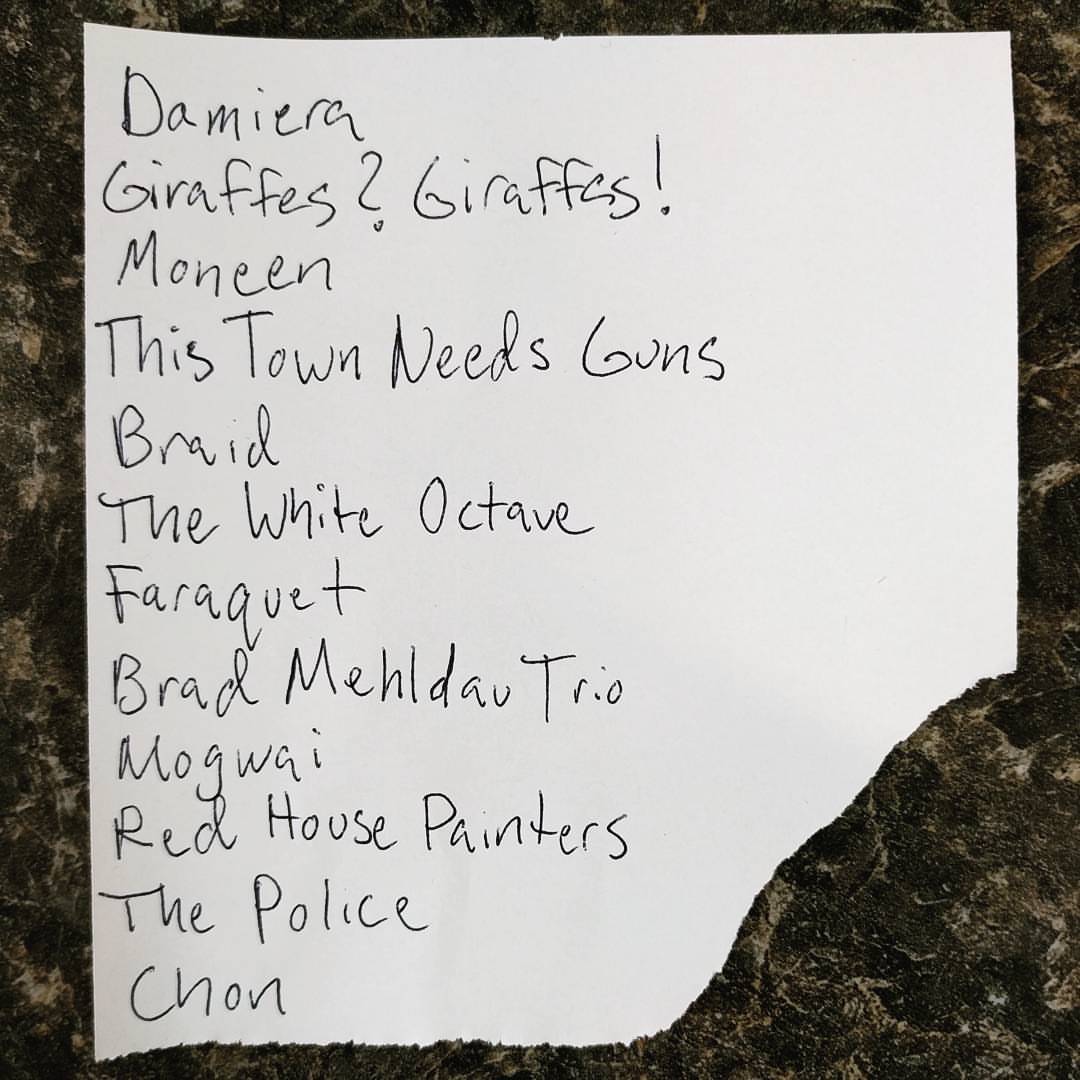 Damiera
Giraffes? Giraffes!
Moneen
This Town Needs Guns
Braid
The White Octave
Faraquet
Brad Mehldau Trio
Mogwai
Red House Painters
The Police
Chon